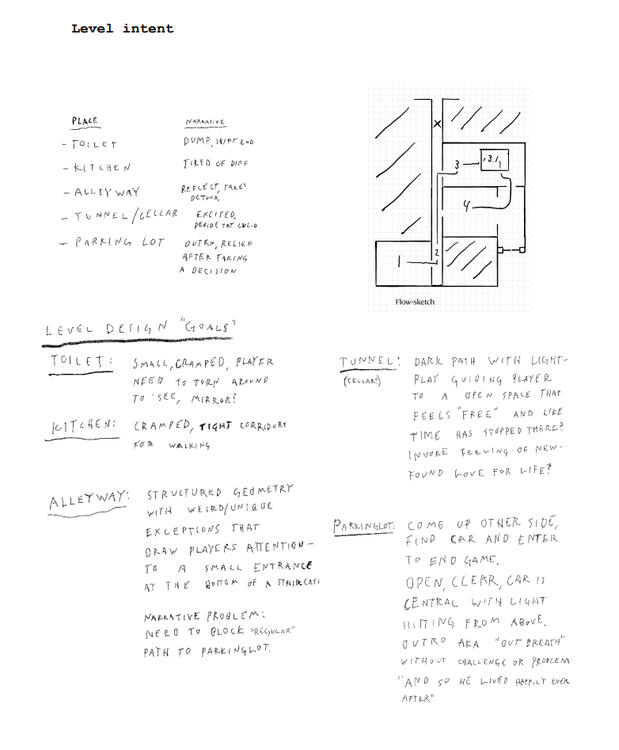 Level intent
PLACE NARRATIVE
- TOILET DUMP, END
- KITCHEN TIRED OF
- ALLEYWAY REFLECT, TAKES
DETOUR
- TUNNEL/CELLAR EXCITED,
DECIDE
- PARKING LOT OUTRO, RELIED
AFTER TAKING
A DECISION
X
3 3.1
4
2
1
Flow-sketch
LEVEL DESIGN "GOALS"
TOILET: SMALL, CRAMPED, PLAYER
NEED TO TURN AROUND
TO SEE, MIRROR?
KITCHEN: CRAMPED, TIGHT CORRIDORS
FOR WALKING
ALLEYWAY: STRUCTURED GEOMETRY
WITH WEIRD/UNIQUE
EXCEPTIONS THAT
DRAW PLAYERS ATTENTION-
TO A SMALL ENTRANCE
AT THE BOTTOM OF A STAIRCASE
NARRATIVE PROBLEM:
NEED TO BLOCK "REGULAR"
PATH TO PARKINGLOT.
TUNNEL: DARK PATH WITH LIGHT-
(CELLAR?) PLAY GUIDING PLAYER
TO A OPEN SPACE THAT
FEELS "FREE" AND LIKE
TIME HAS STOPPED THERE?
INVOKE FEELING OF NEW-
FOUND LOVE FOR LIFE?
PARKINGLOT: COME UP OTHER SIDE,
FIND CAR AND ENTER
TO END GAME.
OPEN, CLEAR, CAR IS
CENTRAL WITH LIGHT
HITTING FROM ABOVE.
OUTRO AKA "OUT BREATH"
WITHOUT CHALLENGE OR PROBLEM
"AND SO HE LIVED HAPPILY EVER
AFTER"